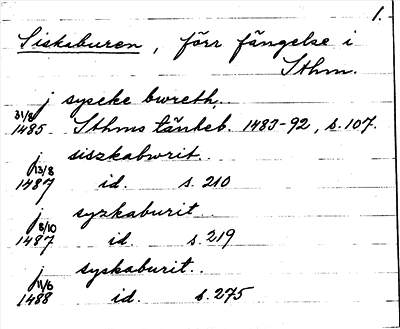 1.
Siskaburen, förr fängelse i
Sthm.
j syscke bwreth.
31/8
1485 Sthms tänkeb. 1483-92, s. 107.
j siszkabwrit..
13/8
1487 id. s. 210
j syzkaburit
8/10
1487 id. s. 219
j syskaburit..
11/6
1488 id. s. 275